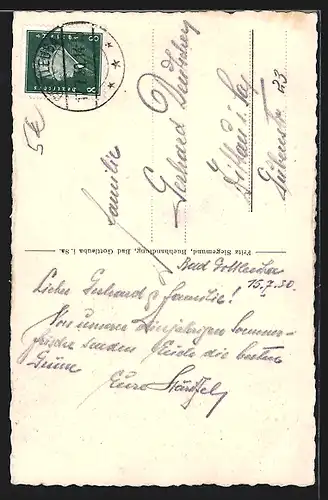 8
Deutsches
8
Familie
Gerhard
Zittau i. Sa.
23
Fritz Siegemund, Buchhandlung, Bad Gottleuba i. Sa.
Bad Gottleuba
15.7.30.
Lieber Gerhard & Familie!
Von unserer diesjährigen Sommer-
frische senden Euch die besten
Eure
5€